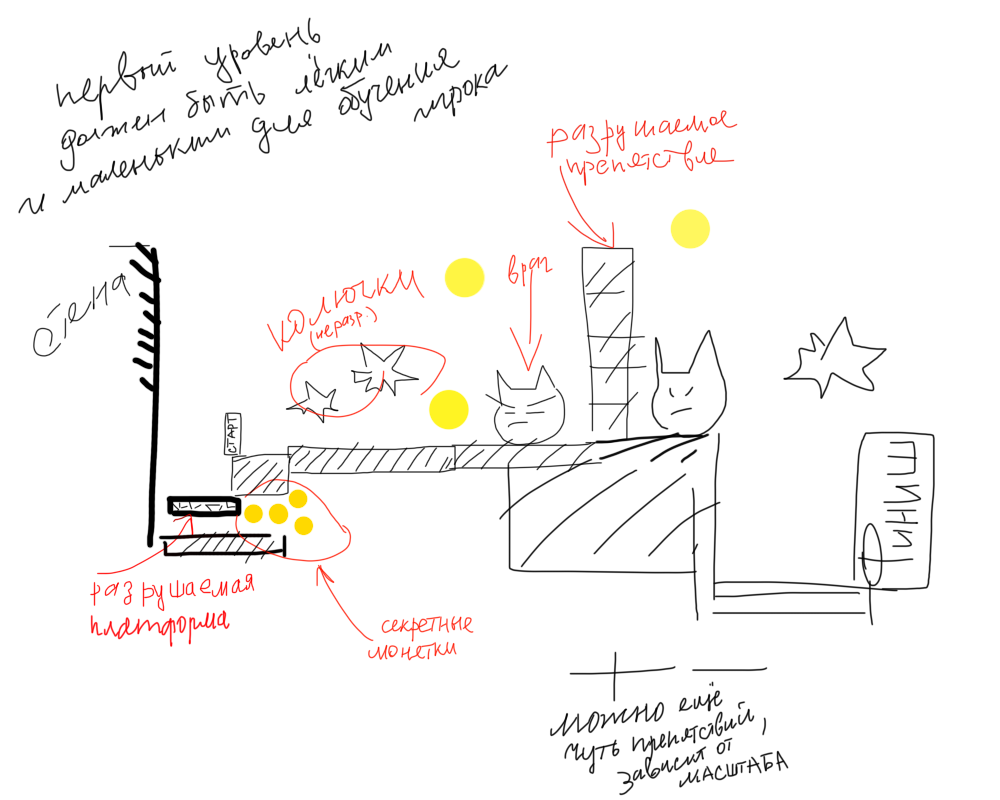 первый уровень
должен быть лёгким
и маленьким для обучения
игрока
разрушаемое
препятствие
стена
колючки
(неразр.)
враг
СТАРТ
ФИНИШ
разрушаемая
платформа
секретные
монетки
можно ещё
чуть препятствий,
зависит от
масштаба